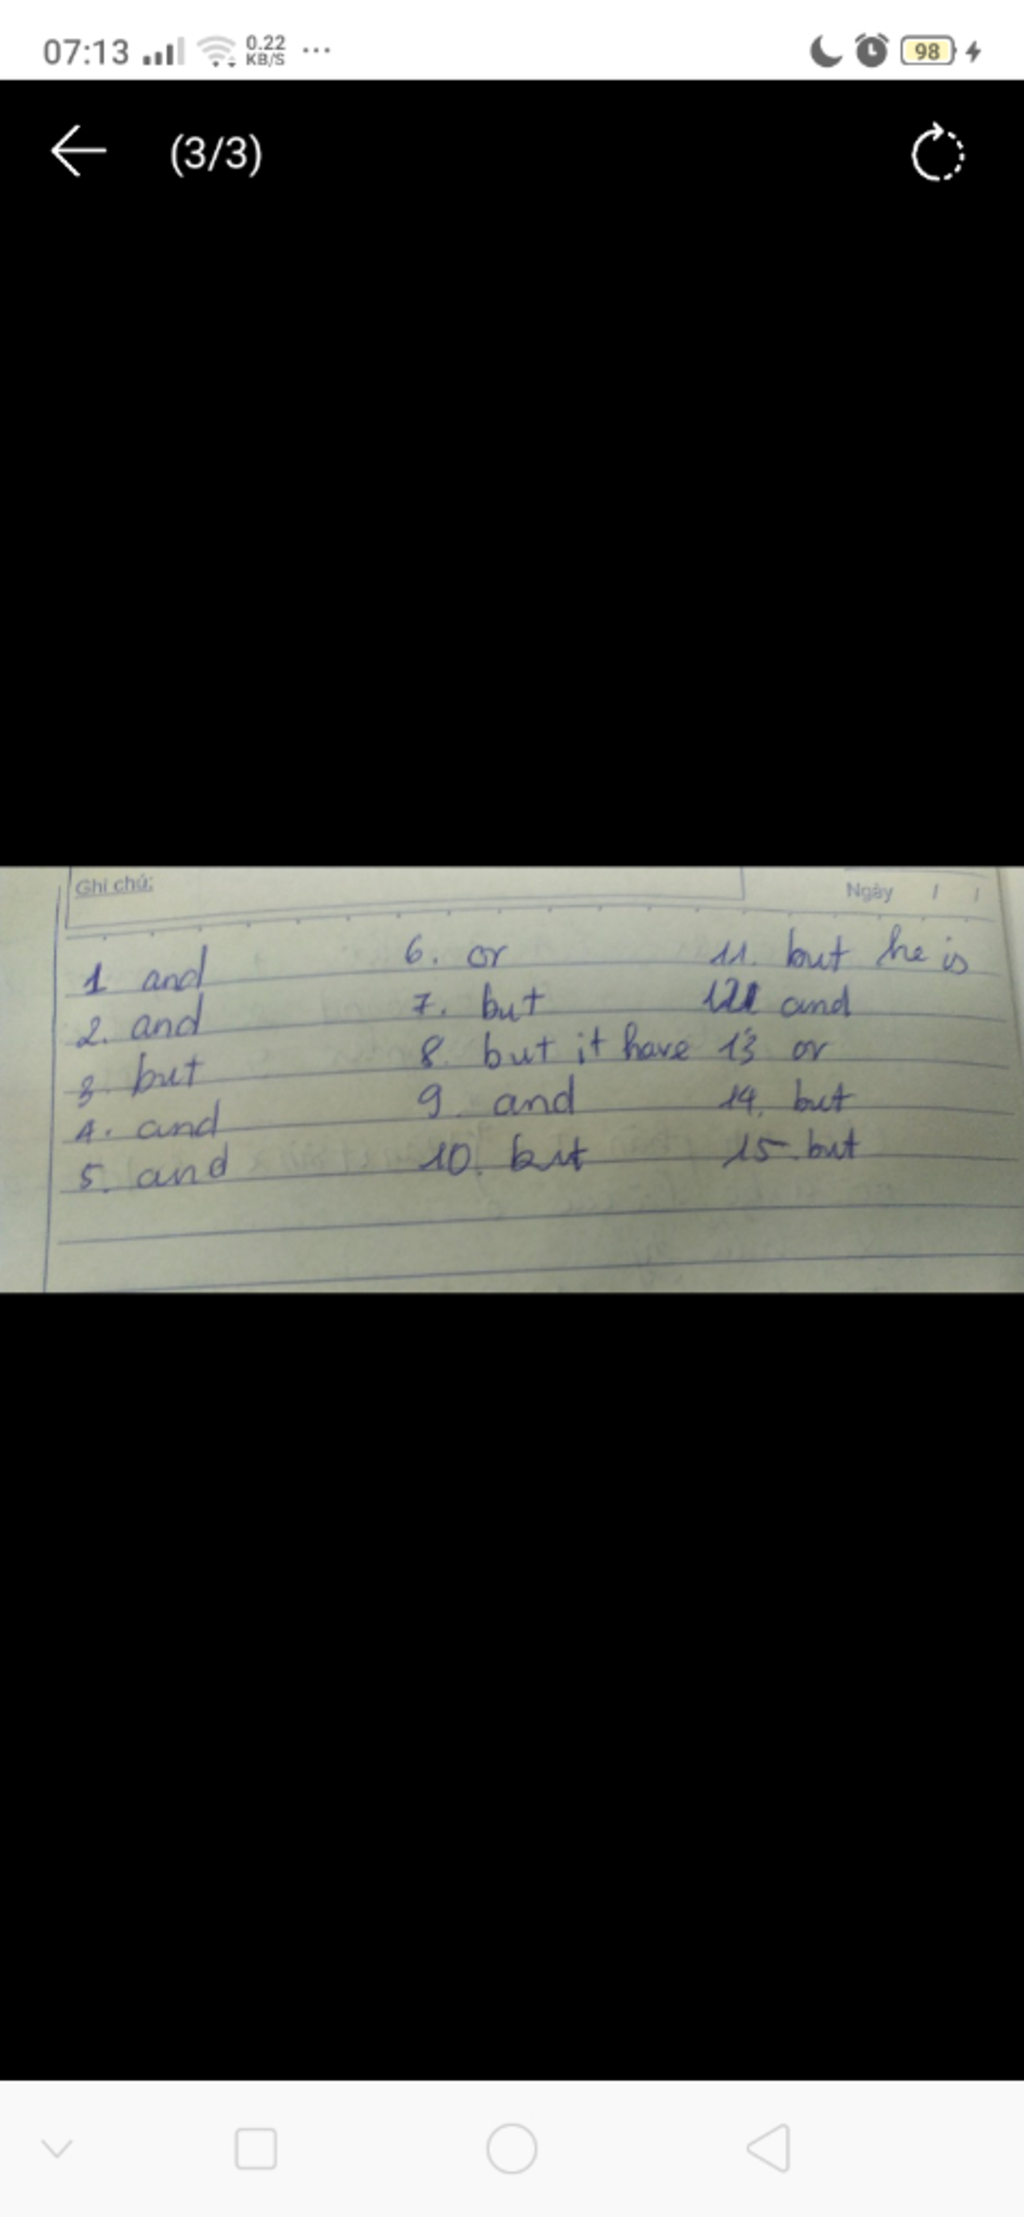 07:13 0.22 KB/S ... 98
(3/3)
Ghi chú:
Ngày / /
1 and
2. and
3. but
4. and
5. and
6. or
7. but
8. but it have
9. and
10. but
11. but he is
12 and
13 or
14. but
15. but